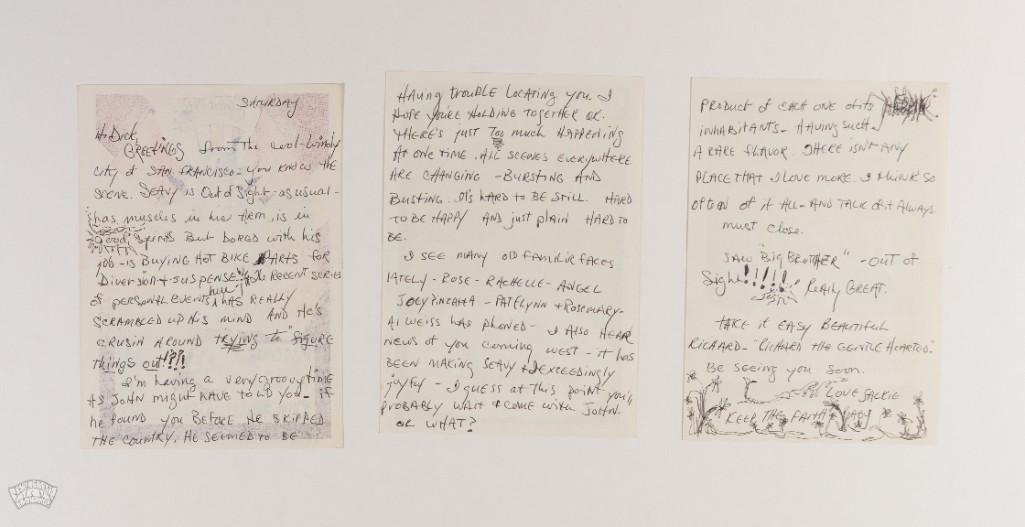 SATURDAY
Hi Dick
GREETINGS from the cool-windy
city of SAN FRANCISCO - you know the
SCENE. SEAVY is Out of Sight - as usual -
has muscles in his arm, is in
"Good" spirits But bored with his
job - is BUYING HOT BIKE PARTS FOR
Diversion + suspense. The RECENT SERIES
of personal events here HAS REALLY
SCRAMBLED UP his MIND AND HE'S
CRUSIN AROUND trying to "figure
things out!?!!
I'm having a very groovy time
AS JOHN might HAVE TOLD YOU - if
he found you BEFORE HE SKIPPED
THE COUNTRY. HE SEEMED to BE
HAVING trouble locating you. I
HOPE YOU'RE HOLDING TOGETHER OK.
THERE'S JUST Too much HAPPENING
AT ONE TIME. All SCENES EVERYWHERE
ARE CHANGING - BURSTING AND
BUSTING. It's HARD to BE STILL. HARD
TO BE HAPPY AND just plain HARD TO
BE.
I SEE MANY OLD FAMILIAR FACES
lATELY - ROSE - RACHELLE - ANGEL
JOEY - PATELYNN + ROSEMARY -
Al WEISS HAS PHONED - I Also HEAR
NEWS of you coming WEST - it HAS
BEEN MAKING SEAVY + I EXCEEDINGLY
joyful - I guess at this point you'll
PROBABLY WAIT + COME WITH JOHN.
OR WHAT?
PRODUCT of EACH ONE of its
inHABITANTS - HAVING SUCH
A RARE FLAVOR. THERE ISN'T ANY
PLACE THAT I LOVE MORE. I THINK SO
OFTEN of it ALL - AND TALK of it ALWAYS.
must close.
SAW "BIG BROTHER" - OUT of
Sight!!!!! Really GREAT.
TAKE it EASY BEAUTIFUL
RICHARD - "RICHARD THE GENTLE HEARTED."
BE SEEING you SOON.
LOVE JACKIE
KEEP THE FAITH BABY